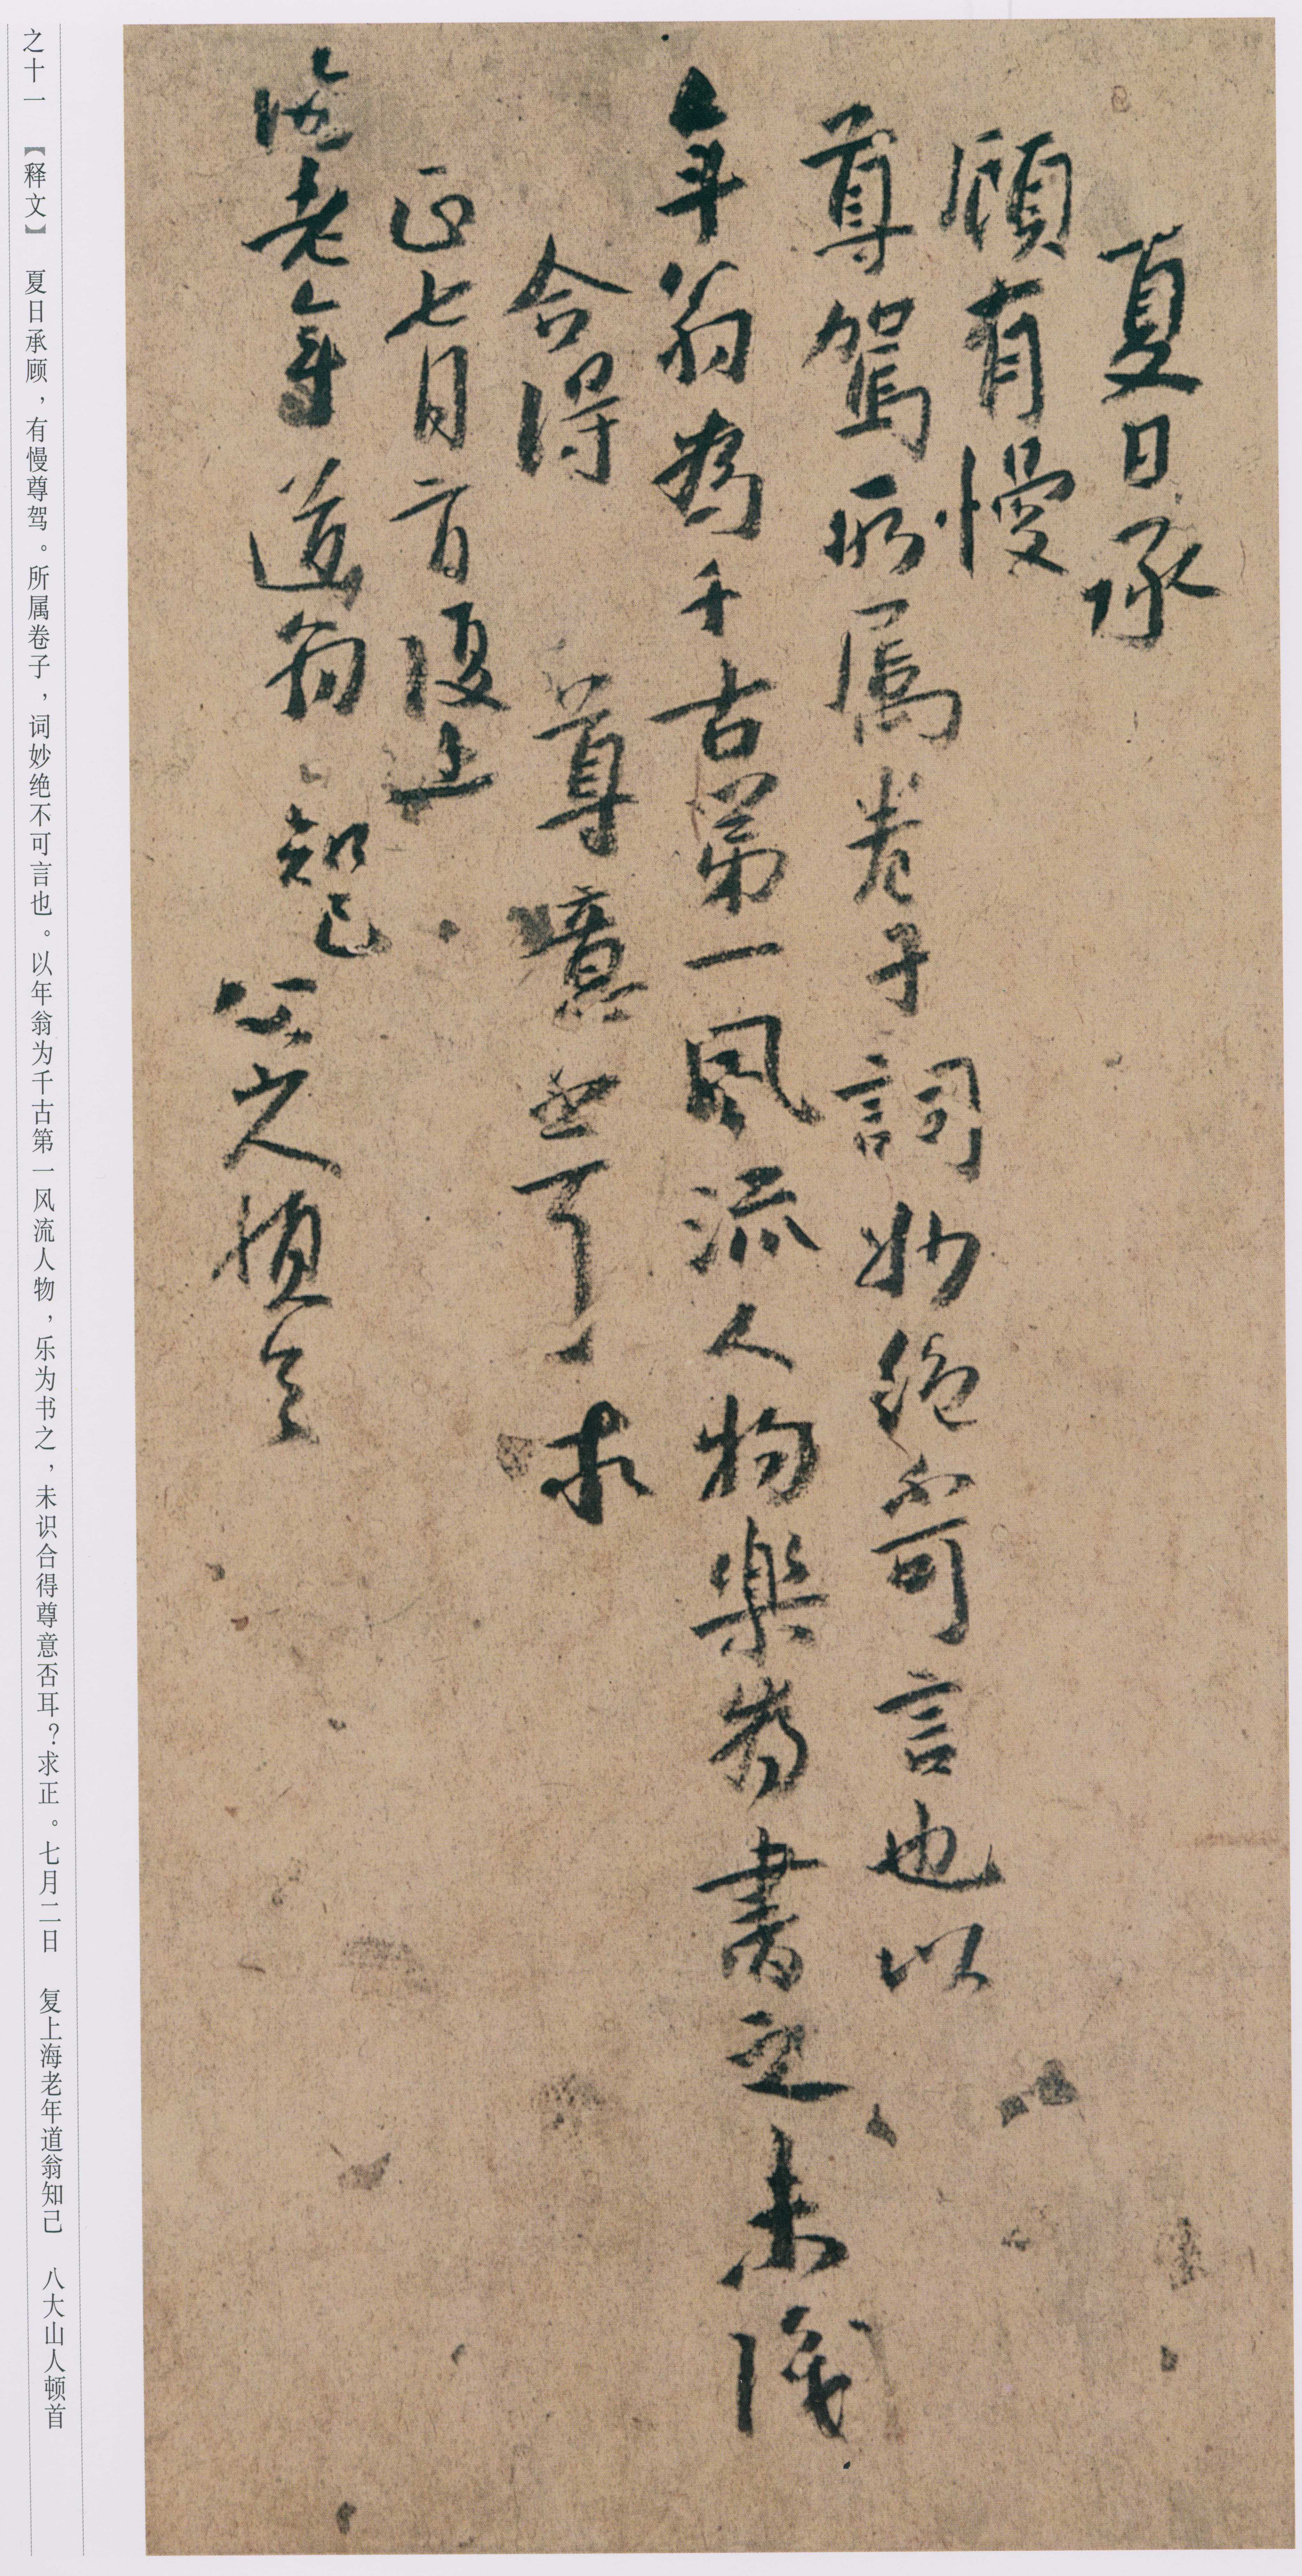 夏日承
顧有慢
尊駕所属卷子詞妙絕不可言也以
年翁為千古第一風流人物樂為書之未識
合得尊意否耳求
正七月二日復上
海老年道翁知己
八大山人頓首
之十一 【释文】 夏日承顾，有慢尊驾。所属卷子，词妙绝不可言也。以年翁为千古第一风流人物，乐为书之，未识合得尊意否耳？求正。七月二日 复上海老年道翁知己 八大山人顿首